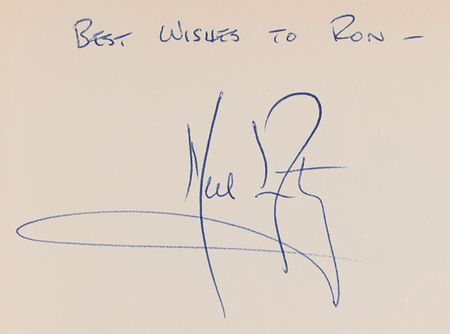 Best Wishes to Ron —
Neil